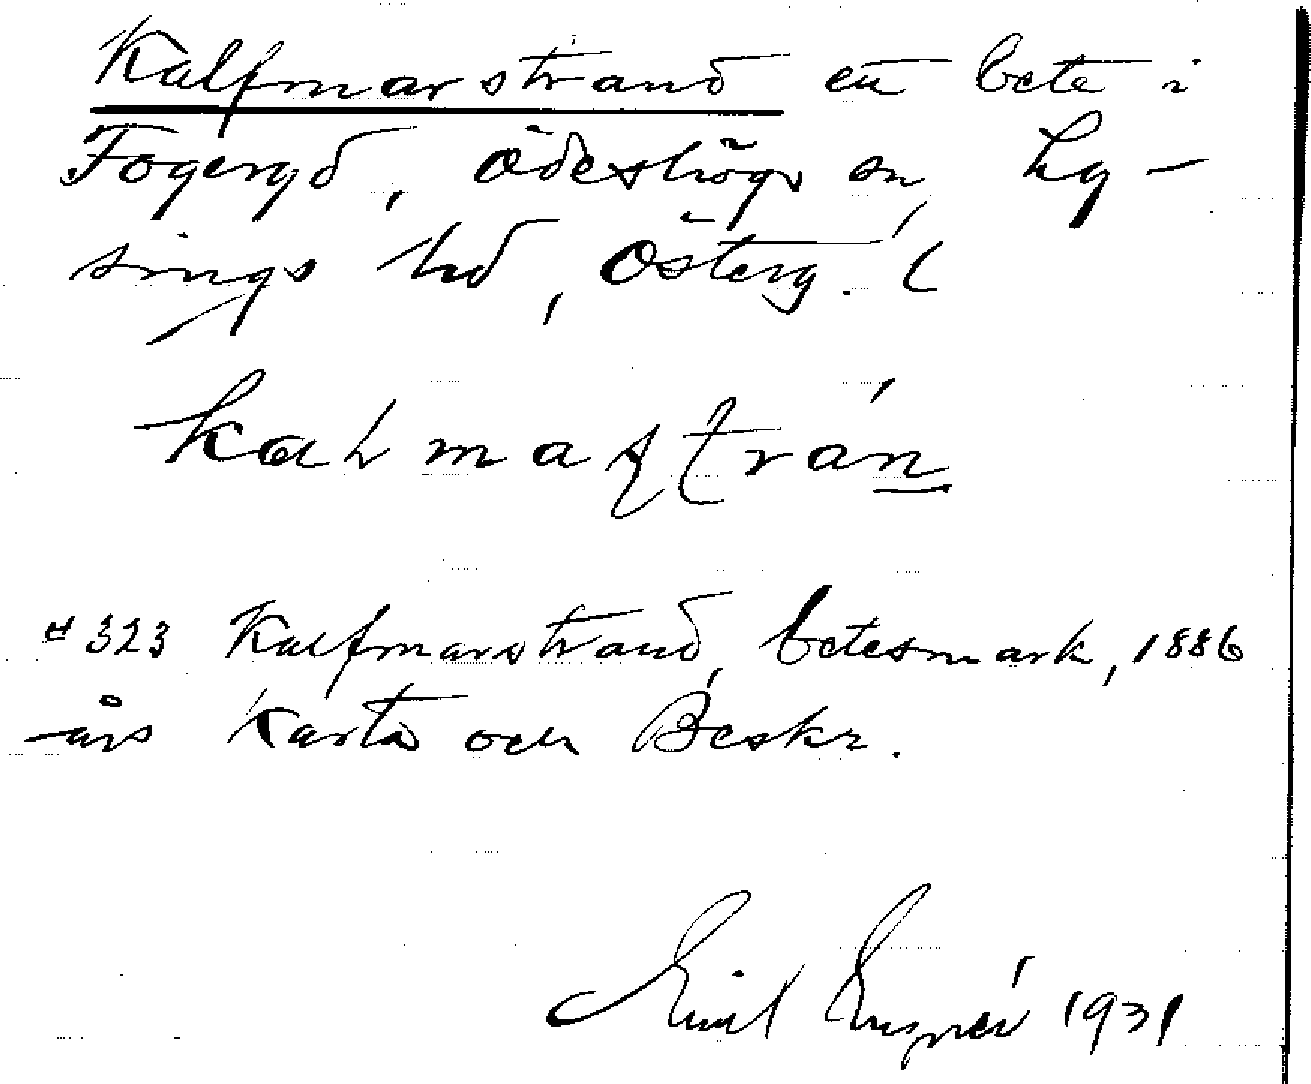 Kalfmarstrand en bete i
Fogeryd, Ödeshögs sn, Ly-
sings hd, Österg. L
kalmastrán
#323 Kalfmarstrand, betesmark, 1886
års Karta och Beskr.
Emil 1931